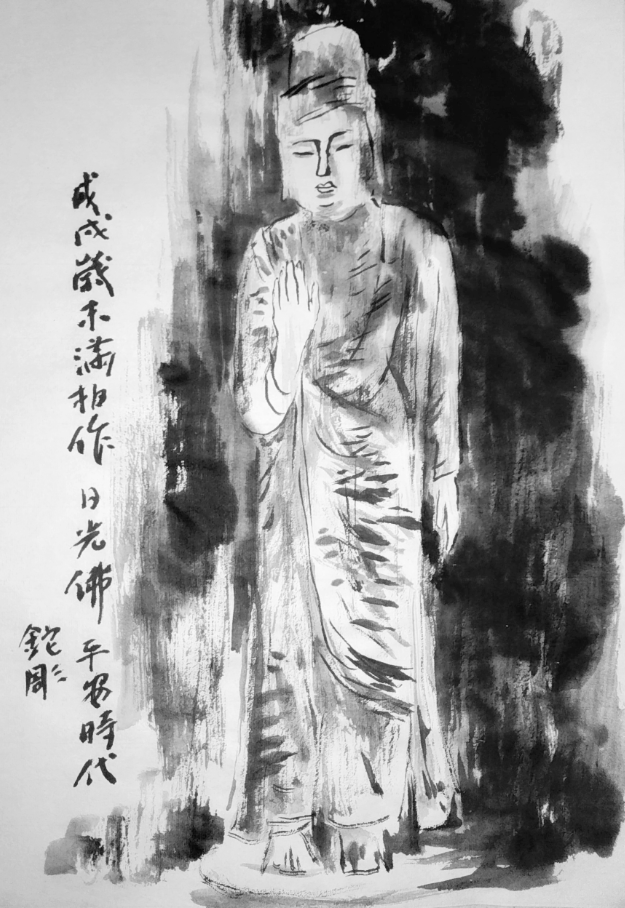 戊戌歲末滿柏作 日光佛 平安時代
鉈彫